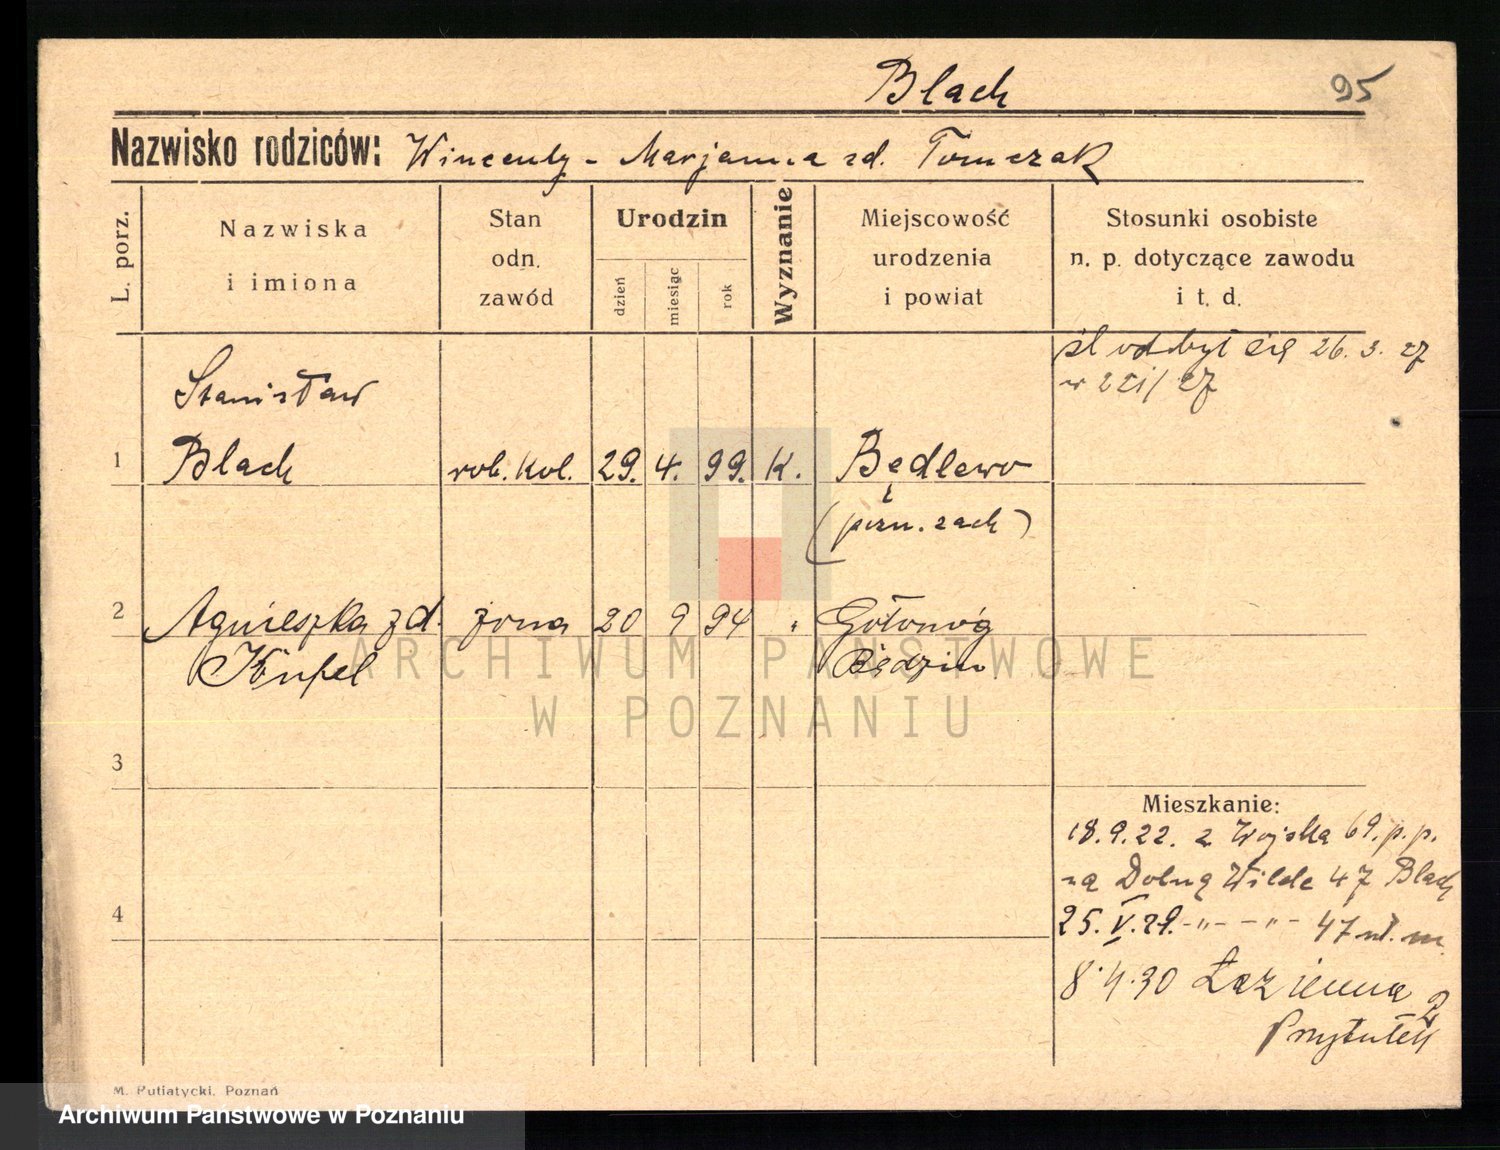 Blach
95
Nazwisko rodziców: Wincenty - Marjanna zd. Tomczak
L. porz.
Nazwiska
i imiona
Stan
odn.
zawód
Urodzin
dzień
miesiąc
rok
Wyznanie
Miejscowość
urodzenia
i powiat
Stosunki osobiste
n. p. dotyczące zawodu
i t. d.
śl odbył się 26. 3. 27
w
Stanisław
1 Blach rob. kol. 29. 4. 99. K. Będlewo
(pozn. zach)
2 Agnieszka zd. żona 20 9 94 " Gołonóg
Knfel Będzin
3
Mieszkanie:
18.9.22. z Wojska 69. p. p.
na Dolną Wilde 47 Blach
4
25. V. 29. -"- -"- 47 wł. m.
8.4.30 Łazienna 2
Przytułek
M. Putiatycki, Poznań
ARCHIWUM PAŃSTWOWE
W POZNANIU
Archiwum Państwowe w Poznaniu